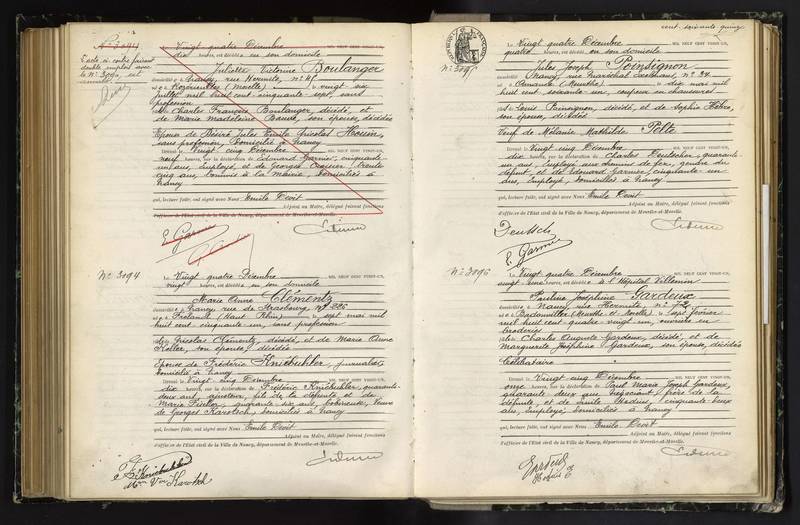 Nº 3094
L'acte ci contre faisant
double emploi avec
le Nº 3090, est
annulé
Le Vingt quatre Décembre MIL NEUF CENT VINGT-UN,
dix heures, est décédée en son domicile
Juliette Victorine Boulanger
domiciliée à Nancy, rue Hermite, nº 45
née à Rozérieulles (Moselle) le vingt six
juillet mil huit cent cinquante sept, sans
profession
de Charles François Boulanger, décédé, et
de Marie Madeleine son épouse, décédée
Epouse de Désiré Jules Emile Nicolas Houin,
sans profession, domicilié à Nancy
Dressé le Vingt cinq Décembre MIL NEUF CENT VINGT-UN,
neuf heures, sur la déclaration de Edouard Garnier, cinquante-
un ans, employé, et de Georges trente
cinq ans, commis à la mairie, domiciliés à
Nancy
qui, lecture faite, ont signé avec Nous Emile Devit
Adjoint au Maire, délégué faisant fonctions
d'officier de l'Etat civil de la Ville de Nancy, département de Meurthe-et-Moselle.
E. Garnier
Nº 3094
Le Vingt quatre Décembre MIL NEUF CENT VINGT-UN,
vingt heures, est décédée en son domicile
Marie Anne Clémentz
domiciliée à Nancy rue de Strasbourg nº 226
née à Frelande (Haut Rhin) le sept mai mil
huit cent cinquante un, sans profession
de Nicolas Clémentz, décédé, et de Marie Anne
Koller, son épouse, décédée
Epouse de Frédéric Kniebuhler, journalier,
domicilié à Nancy
Dressé le Vingt cinq Décembre MIL NEUF CENT VINGT-UN,
dix heures, sur la déclaration de Frédéric Kniebuhler, quarante-
deux ans, ajusteur, fils de la défunte et de
Marie quarante six ans, bobineuse, Veuve
de Georges Karotsch, domiciliés à Nancy
qui, lecture faite, ont signé avec Nous Emile Devit
Adjoint au Maire, délégué faisant fonctions
d'officier de l'Etat civil de la Ville de Nancy, département de Meurthe-et-Moselle.
Kniebuhler
Mme Vve Karotsch
cent soixante quinze
Nº 3095
Le Vingt quatre Décembre MIL NEUF CENT VINGT-UN,
quatre heures, est décédé en son domicile
Jules Joseph Poinsignon
domicilié à Nancy, rue Maréchal Exelmans, nº 34
né à (Meurthe) le dix mai mil
huit cent soixante un, coupeur en chaussures
de Louis Poinsignon, décédé, et de Sophie
son épouse, décédée
Veuf de Mélanie Mathilde Pelte
Dressé le Vingt cinq Décembre MIL NEUF CENT VINGT-UN,
dix heures, sur la déclaration de Charles Deutscher, quarante-
un ans, employé aux chemins de fer, gendre du
défunt et de Edouard Garnier, cinquante-un
ans, Employé, domiciliés à Nancy
qui, lecture faite, ont signé avec Nous Emile Devit
Adjoint au Maire, délégué faisant fonctions
d'officier de l'Etat civil de la Ville de Nancy, département de Meurthe-et-Moselle.
E. Garnier
Nº 3096
Le Vingt quatre Décembre MIL NEUF CENT VINGT-UN,
vingt une heures, est décédée à l'Hôpital Villemin
Pauline Joséphine Gardeux
domiciliée à Nancy, rue Hermite, nº 72
née à Badonviller (Meurthe et Moselle) le sept février
mil huit cent quatre vingt un, ouvrière en
broderies
de Charles Auguste Gardeux, décédé, et de
Marguerite Joséphine Gardeux, son épouse, décédée
Célibataire
Dressé le Vingt cinq Décembre MIL NEUF CENT VINGT-UN,
onze heures, sur la déclaration de Paul Marie Joseph Gardeux,
quarante deux ans, négociant, frère de la
défunte, et de Emile cinquante deux
ans, Employé, domiciliés à Nancy
qui, lecture faite, ont signé avec Nous Emile Devit
Adjoint au Maire, délégué faisant fonctions
d'officier de l'Etat civil de la Ville de Nancy, département de Meurthe-et-Moselle.
Gardeux